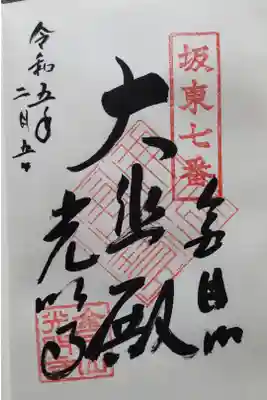 坂東七番
金目山
大悲殿
光明寺
令和五年
二月五日